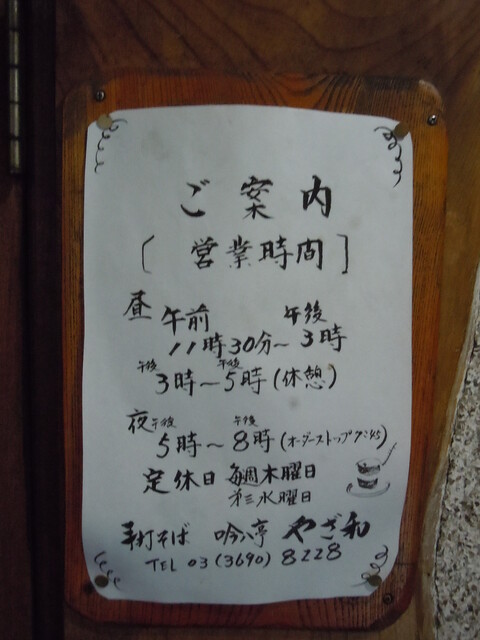 ご案内
[営業時間]
昼 午前11時30分～午後3時
午後3時～午後5時(休憩)
夜 午後5時～午後8時(オーダーストップ7:45)
定休日 毎週木曜日
第三水曜日
手打そば 吟八亭 やざ和
TEL 03(3690)8228